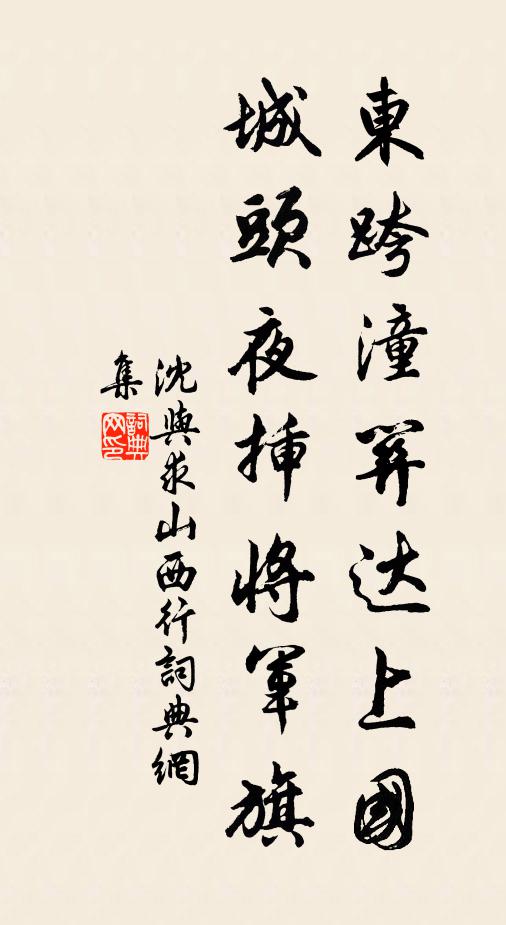 東跨潼関达上國
城頭夜插將軍旗
沈與求山西行詞典網
集
詞典
网印